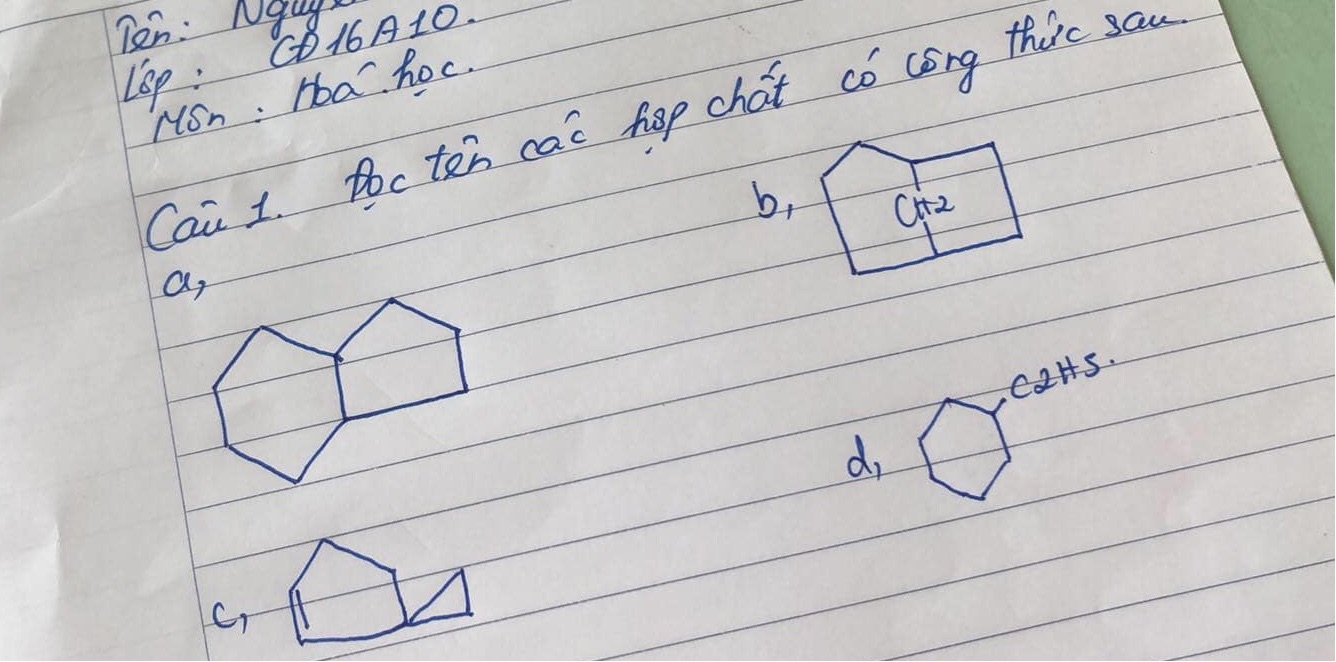 Tên: Nguy
Lớp: CĐ16A10.
Môn: Hoá học.
Câu 1. Đọc tên các hợp chất có công thức sau.
a,
b,
CH2
d,
C2H5.
c,